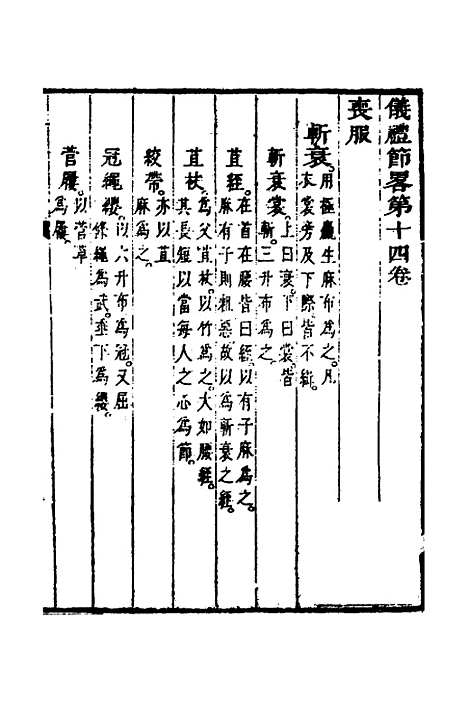 儀禮節畧第十四卷
喪服
斬衰用極麤生麻布為之。凡衣裳旁及下際皆不緝。
斬衰裳上曰衰。下曰裳。皆斬。三升布為之。
苴絰在首在腰皆曰絰。以有子麻為之。麻有子則粗惡。故以為斬衰之絰。
苴杖為父苴杖。以竹為之。大如腰絰。其長短以當每人之心為節。
絞帶亦以苴麻為之。
冠繩纓以六升布為冠。又屈條繩為武。垂下為纓。
菅屨以菅草為屨。